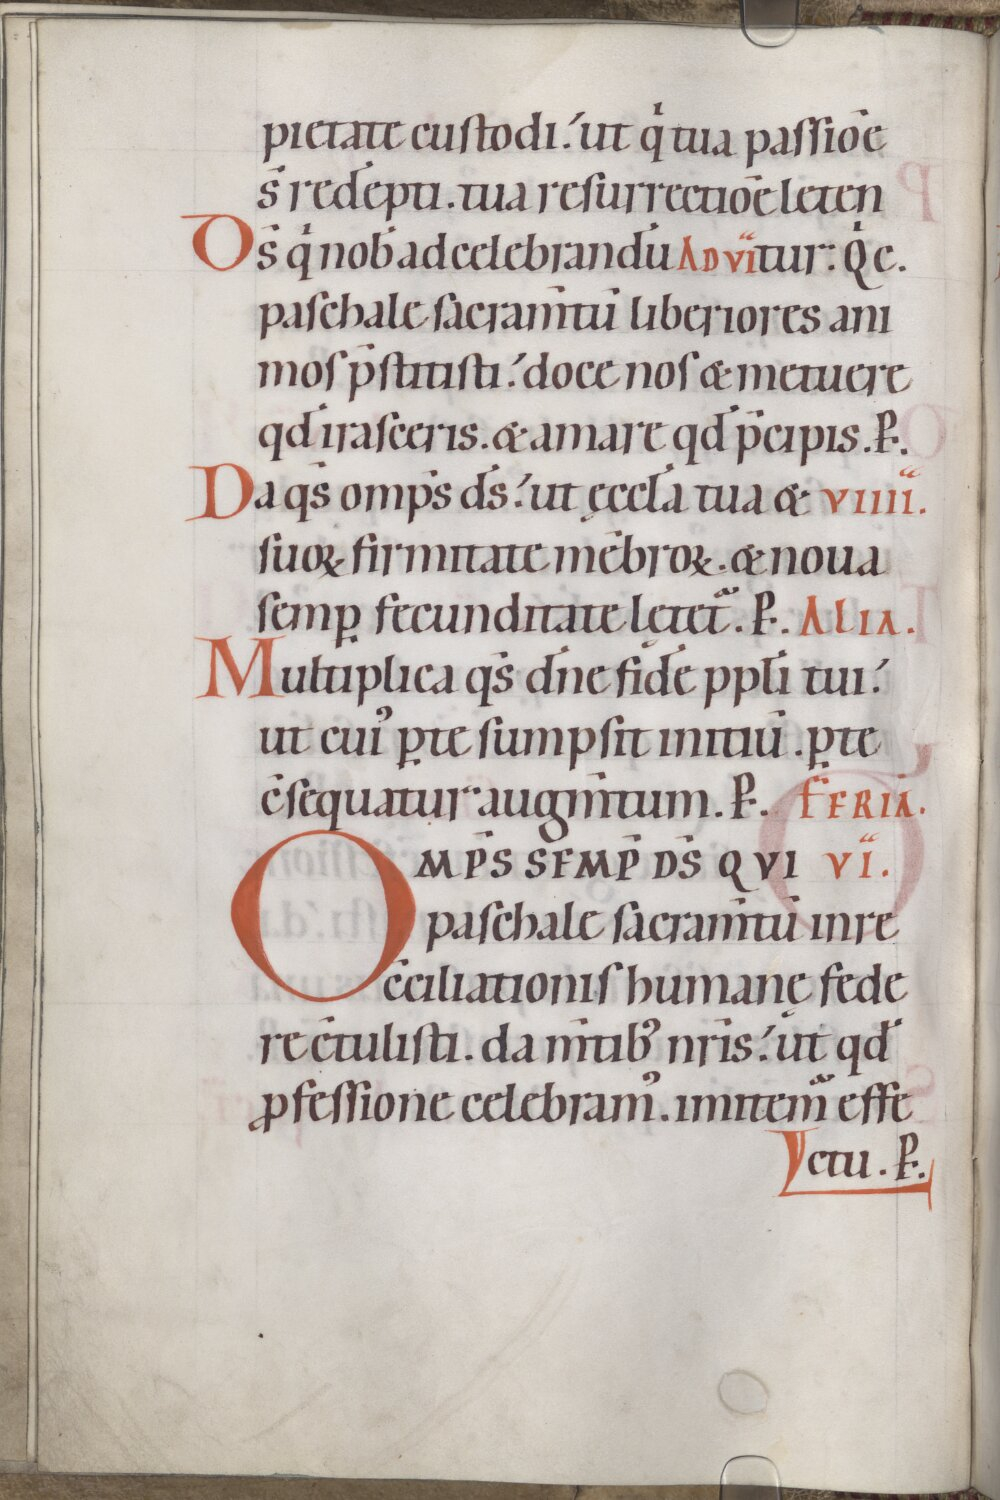 pietate custodi. ut q̇ tua passiōe
s̄ redēpti. tua resurrectiōe leten
Ds̄ q̇ nob̄ ad celebrandū AD VI tur. Q̇ c.
paschale sacram̄tū liberiores ani
mos p̄stitisti. doce nos & metuere
qd̄ irasceris. & amare qd̄ p̄cipis. P.
Da qs̄ omp̄s ds̄. ut ęccl̄a tua & VIIII.
suoꝝ firmitate mēbroꝝ. & noua
semꝑ fecunditate lętet̄. P. ALIA.
Multiplica qs̄ dn̄e fidē ppl̄i tui.
ut cui᾽ ꝑte sumpsit initiū. ꝑte
c̄sequatur augm̄tum. P. FERIA.
OMP̄S SEMP̄ DS̄ QVI VI.
paschale sacram̄tū in re
c̄ciliationis humanę fede
re c̄tulisti. da m̄tib᾽ nr̄is. ut qd̄
ꝓfessione celebram᾽. imitem̄ effe
ctu. P.